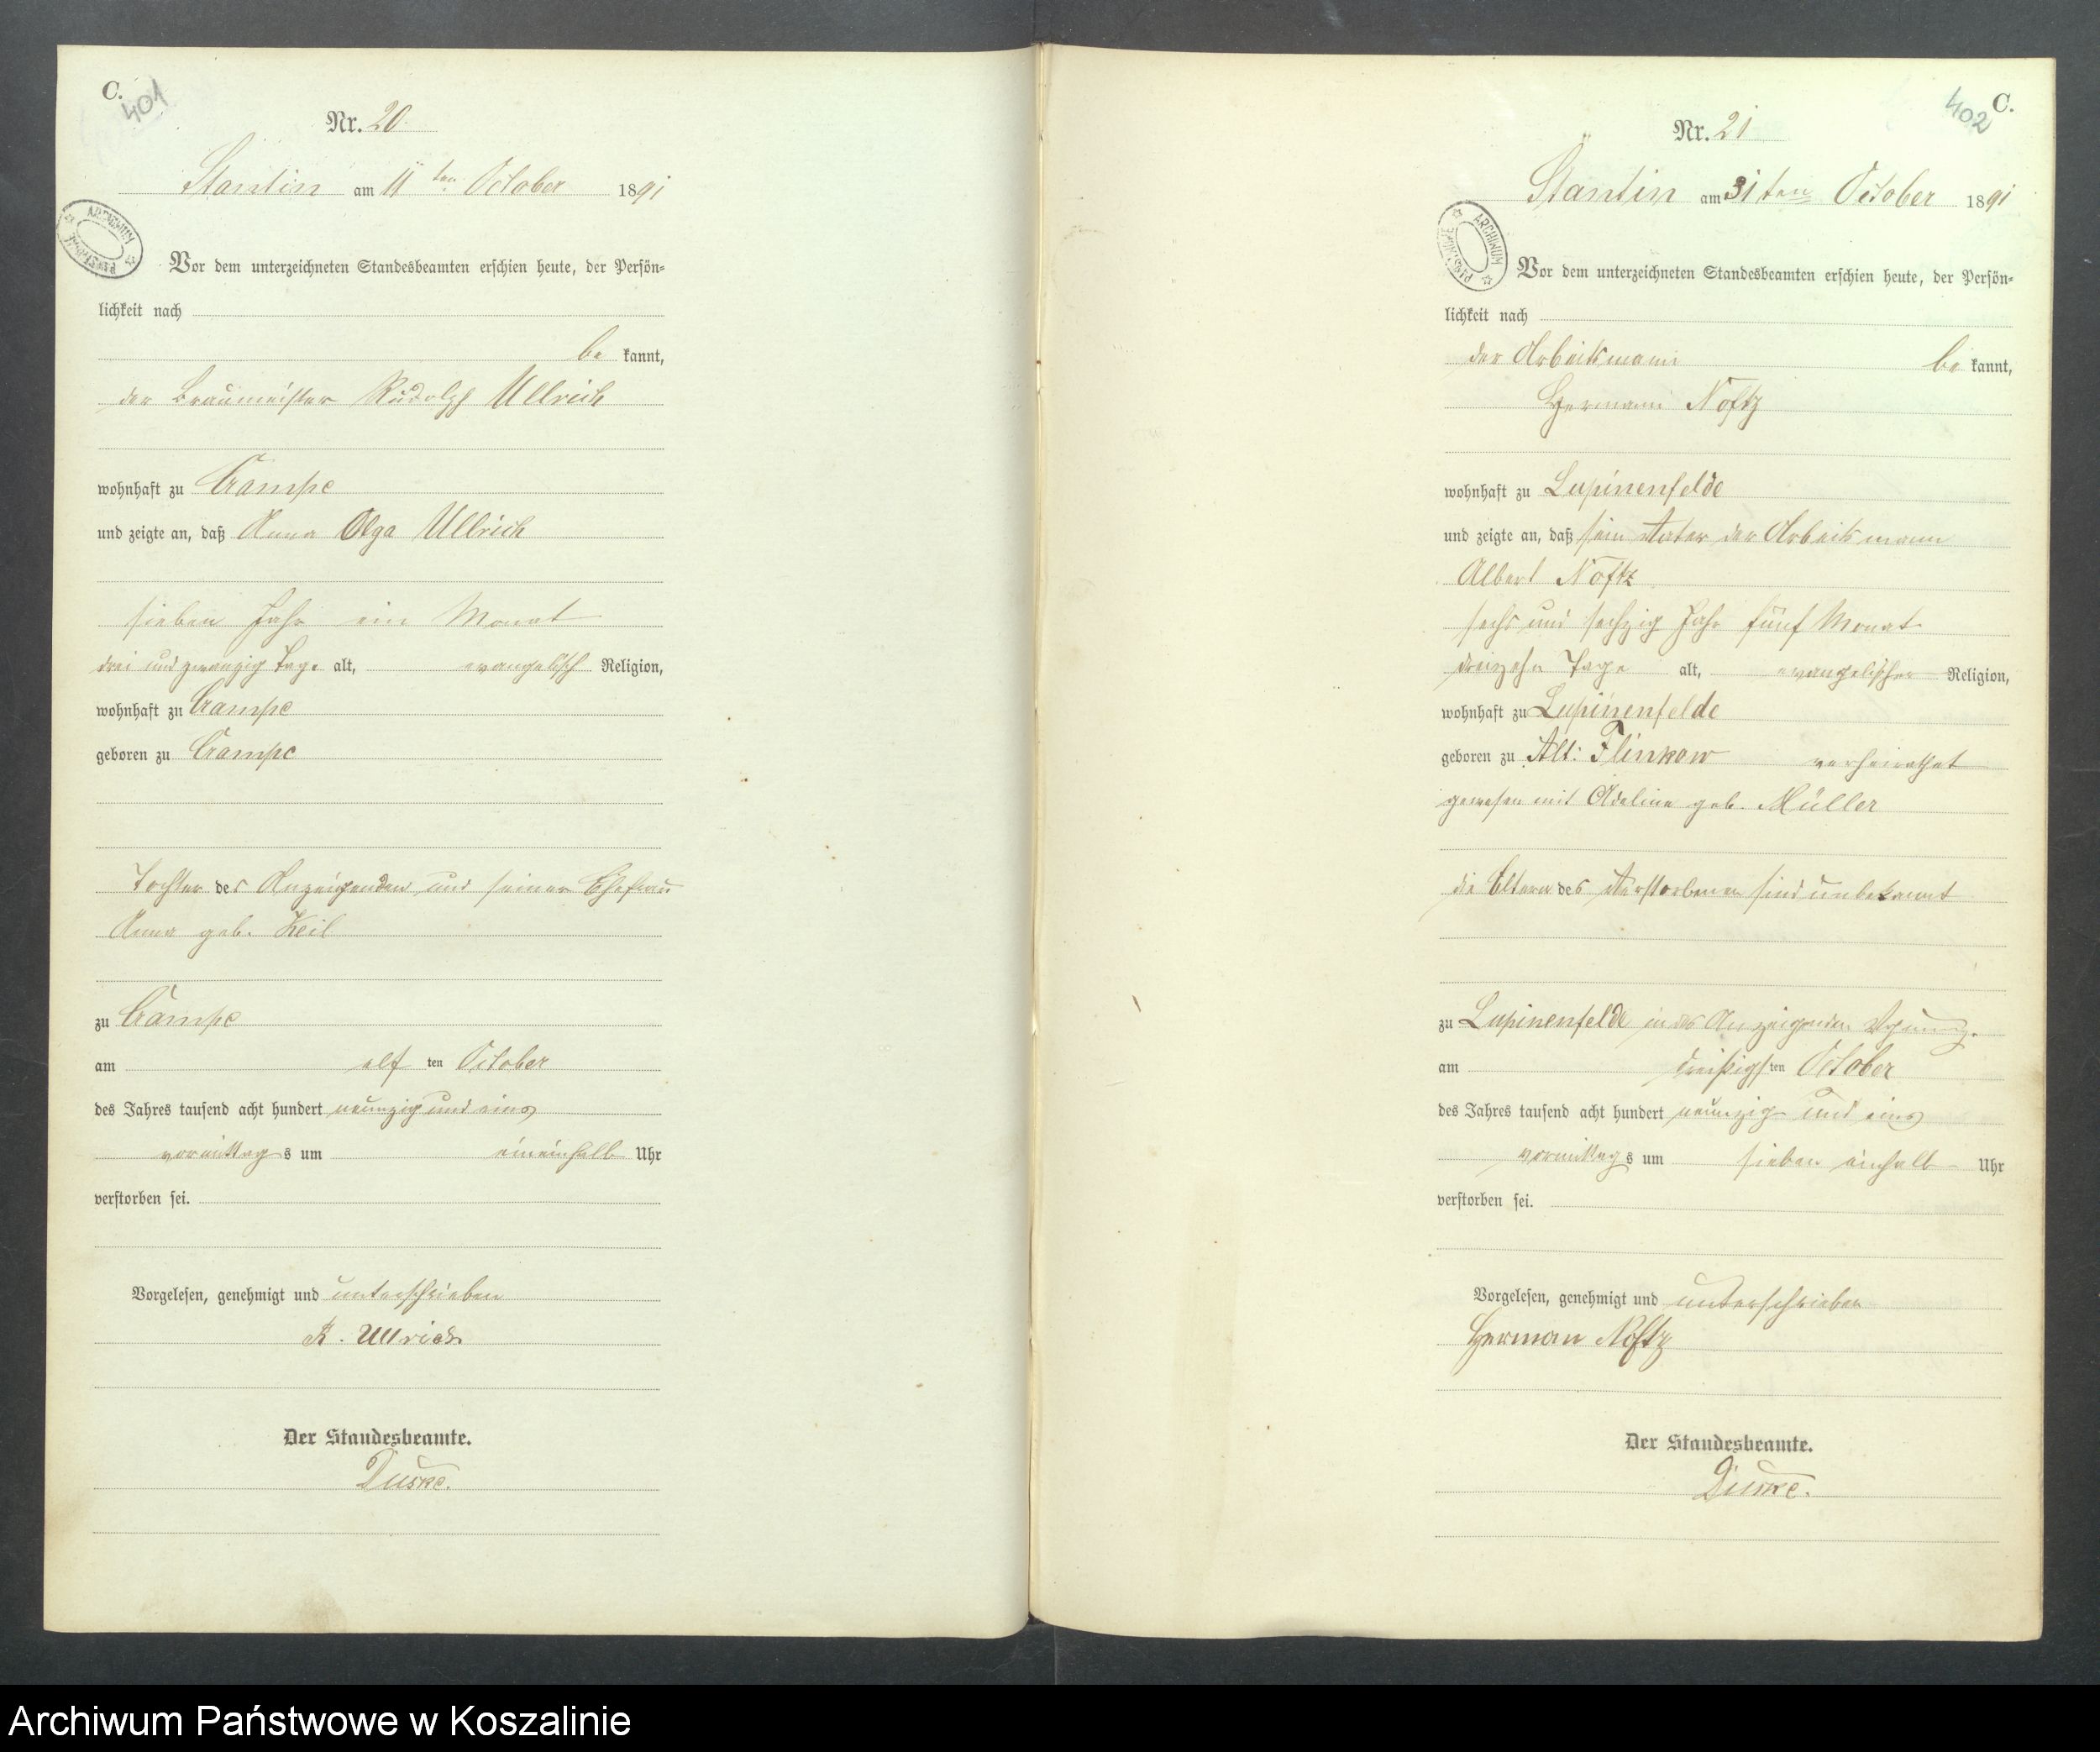 C.
401
Nr. 20.
Stantin am 11ten October 1891
ARCHIWUM PAŃSTWOWE
Vor dem unterzeichneten Standesbeamten erschien heute, der Persön-
lichkeit nach
be kannt,
der Braumeister Rudolph Ullrich
wohnhaft zu Crampe
und zeigte an, daß Anna Olga Ullrich
sieben Jahr ein Monat
drei und zwanzig Tage alt, evangelisch Religion,
wohnhaft zu Crampe
geboren zu Crampe
Tochter des Anzeigenden und seiner Ehefrau
Anna geb. Keil
zu Crampe
am elf ten October
des Jahres tausend acht hundert neunzig und eins
vormittags um eineinhalb Uhr
verstorben sei.
Vorgelesen, genehmigt und unterschrieben
R. Ullrich
Der Standesbeamte.
Duske.
402
C.
Nr. 21
Stantin am 31ten October 1891
ARCHIWUM PAŃSTWOWE
Vor dem unterzeichneten Standesbeamten erschien heute, der Persön-
lichkeit nach
der Arbeitsmann be kannt,
Hermann Noftz
wohnhaft zu Lupinenfelde
und zeigte an, daß sein Vater der Arbeitsmann
Albert Noftz
sechs und sechzig Jahr fünf Monat
dreizehn Tage alt, evangelischer Religion,
wohnhaft zu Lupinenfelde
geboren zu Alt: Flinkow verheirathet
gewesen mit Adeline geb. Müller
die Eltern des Verstorbenen sind unbekannt
zu Lupinenfelde in des Anzeigenden
am dreißigsten October
des Jahres tausend acht hundert neunzig und eins
vormittags um sieben einhalb Uhr
verstorben sei.
Vorgelesen, genehmigt und unterschrieben
Herman Noftz
Der Standesbeamte.
Duske.
Archiwum Państwowe w Koszalinie